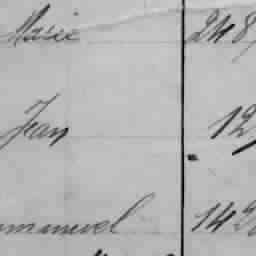 Marie 248
Jean 12
mmanuel 142